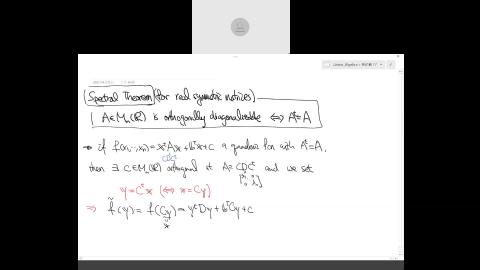 Spectral Theorem (for real symmetric matrices)
A∈Mₙ(ℝ) is orthogonally diagonalizable ⟺ Aᵗ=A
→ if f(x₁,⋯,xₙ)=xᵗAx+bᵗx+c a quadratic fcn with Aᵗ=A,
then ∃ C∈Mₙ(ℝ) orthogonal st A=CDCᵗ and we set
y=Cᵗx (⟺ x=Cy)
⇒ f̃(y)=f(Cy)=yᵗDy+bᵗCy+c
x